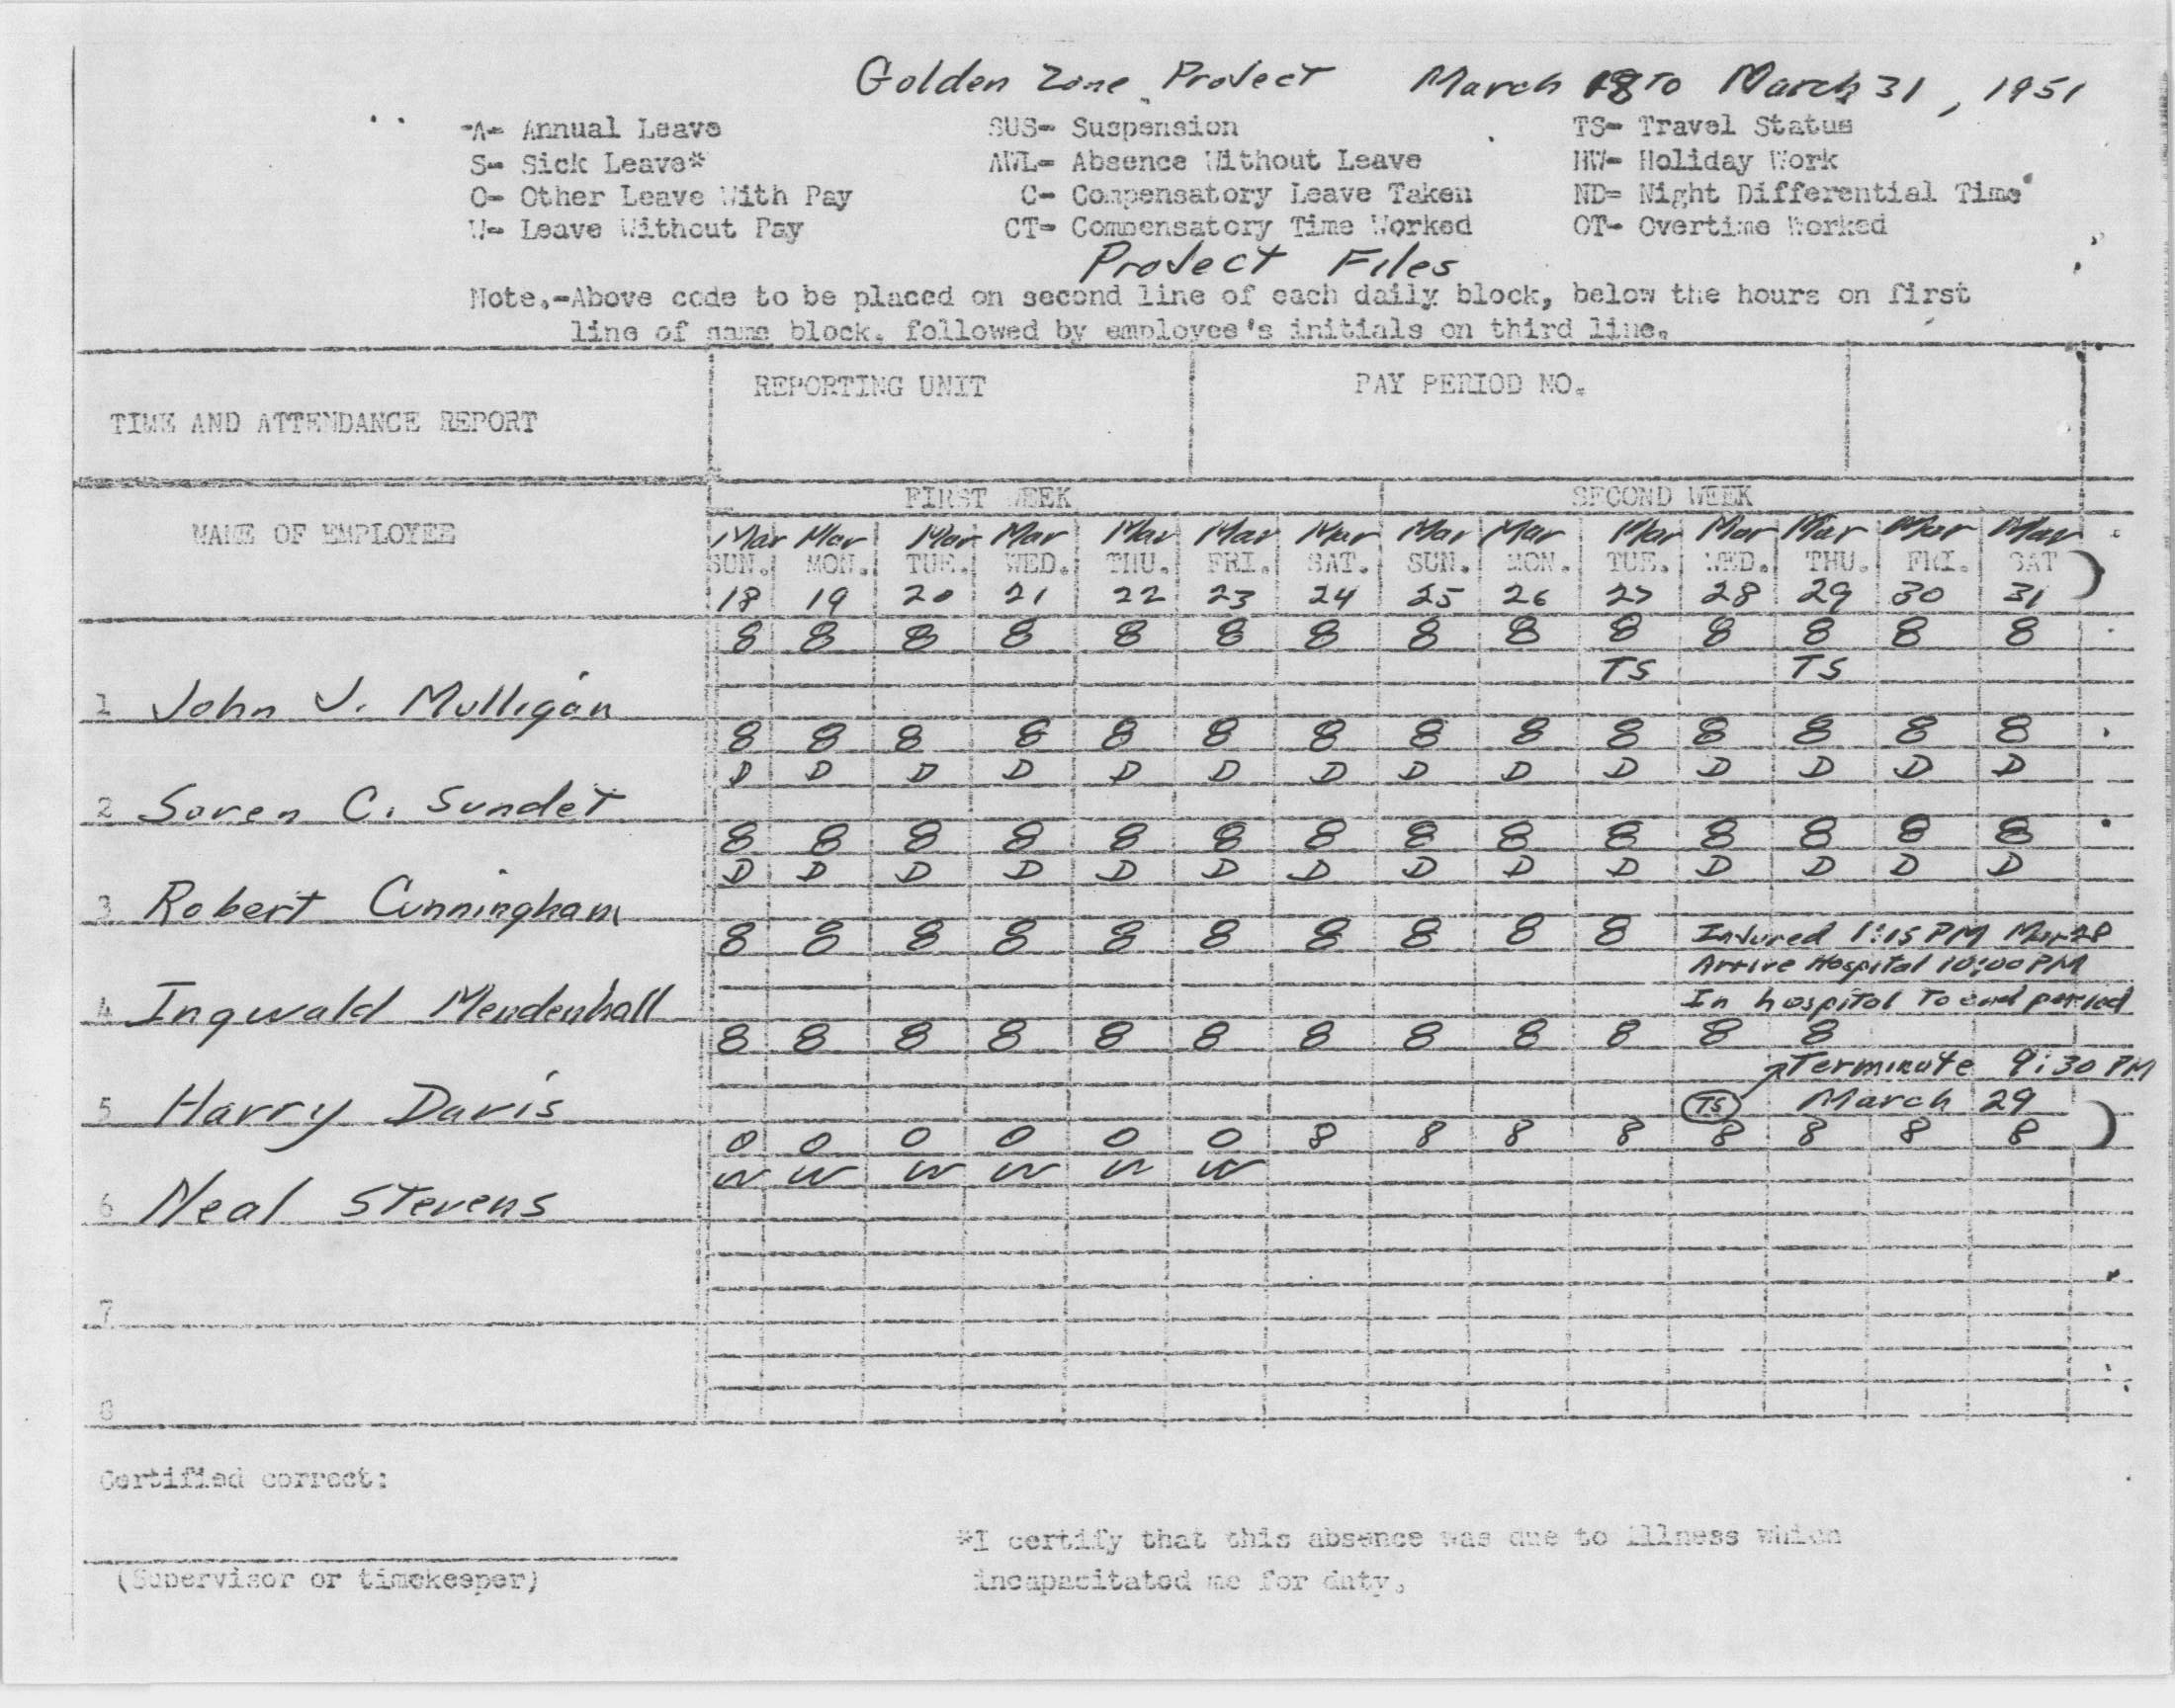 Golden Zone Project March 18 to March 31, 1951
-A- Annual Leave SUS- Suspension TS- Travel Status
S- Sick Leave* AWL- Absence Without Leave HW- Holiday Work
O- Other Leave With Pay C- Compensatory Leave Taken ND= Night Differential Time
W- Leave Without Pay CT- Compensatory Time Worked OT- Overtime Worked
Project Files
Note.-Above code to be placed on second line of each daily block, below the hours on first
line of same block, followed by employee's initials on third line.
REPORTING UNIT PAY PERIOD NO.
TIME AND ATTENDANCE REPORT
FIRST WEEK SECOND WEEK
NAME OF EMPLOYEE
Mar Mar Mar Mar Mar Mar Mar Mar Mar Mar Mar Mar Mar Mar
SUN. MON. TUE. WED. THU. FRI. SAT. SUN. MON. TUE. WED. THU. FRI. SAT
18 19 20 21 22 23 24 25 26 27 28 29 30 31
8 8 8 8 8 8 8 8 8 8 8 8 8 8
TS TS
1 John J. Mulligan
8 8 8 8 8 8 8 8 8 8 8 8 8 8
D D D D D D D D D D D D D D
2 Soren C. Sundet
8 8 8 8 8 8 8 8 8 8 8 8 8 8
D D D D D D D D D D D D D D
3 Robert Cunningham
8 8 8 8 8 8 8 8 8 8 Injured 1:15 PM Mar 28
Arrive Hospital 10:00 PM
4 Ingwald Mendenhall In hospital To end period
8 8 8 8 8 8 8 8 8 8 8 8
Terminate 9:30 PM
5 Harry Davis TS March 29
0 0 0 0 0 0 8 8 8 8 8 8 8 8
W W W W W W
6 Neal Stevens
7
8
Certified correct:
*I certify that this absence was due to illness which
(Supervisor or timekeeper) incapacitated me for duty.